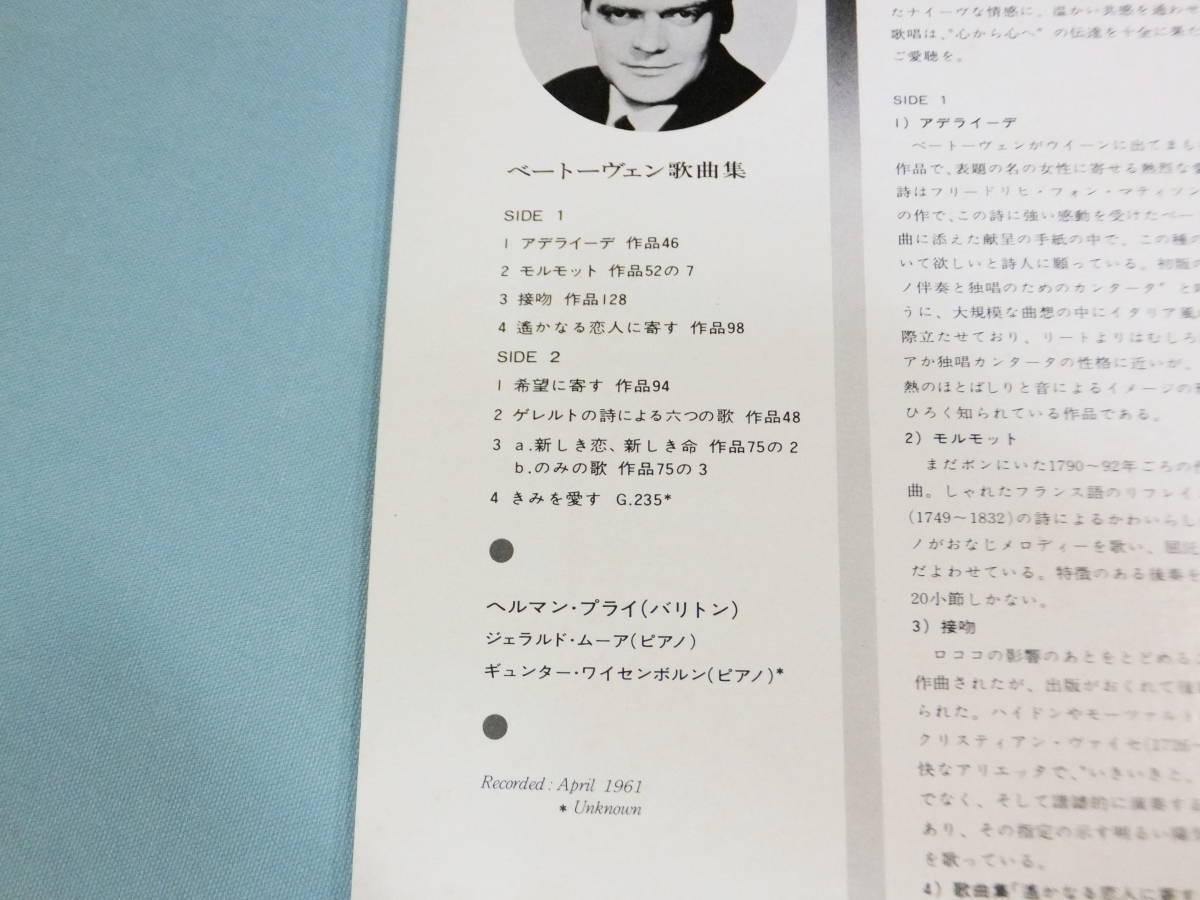 ベートーヴェン歌曲集
SIDE 1
1 アデライーデ 作品46
2 モルモット 作品52の7
3 接吻 作品128
4 遙かなる恋人に寄す 作品98
SIDE 2
1 希望に寄す 作品94
2 ゲレルトの詩による六つの歌 作品48
3 a.新しき恋、新しき命 作品75の2
b.のみの歌 作品75の3
4 きみを愛す G.235*
ヘルマン・プライ(バリトン)
ジェラルド・ムーア(ピアノ)
ギュンター・ワイセンボルン(ピアノ)*
Recorded: April 1961
* Unknown
たナイーヴな情感に、温かい共感を通わせ
歌唱は、"心から心へ" の伝達を十全に果た
ご愛聴を。
SIDE 1
1) アデライーデ
ベートーヴェンがウイーンに出てまも
作品で、表題の名の女性に寄せる熱烈な
詩はフリードリヒ・フォン・マティソン
の作で、この詩に強い感動を受けたベー
曲に添えた献呈の手紙の中で、この種の
いて欲しいと詩人に願っている。初版の
ノ伴奏と独唱のためのカンタータ" と
うに、大規模な曲想の中にイタリア風
際立たせており、リートよりはむしろ
アか独唱カンタータの性格に近いが、
熱のほとばしりと音によるイメージの
ひろく知られている作品である。
2) モルモット
まだボンにいた1790〜92年ごろの
曲。しゃれたフランス語のリフレイ
(1749〜1832)の詩によるかわいらし
ノがおなじメロディーを歌い、
だよわせている。特徴のある後奏を
20小節しかない。
3) 接吻
ロココの影響のあとをとどめる
作曲されたが、出版がおくれて後
られた。ハイドンやモーツァルト
クリスティアン・ヴァイセ(1726
快なアリエッタで、"いきいきと、
でなく、そして諧謔的に演奏する
あり、その指定の示す明るい陽気
を歌っている。
4) 歌曲集「遙かなる恋人に寄す